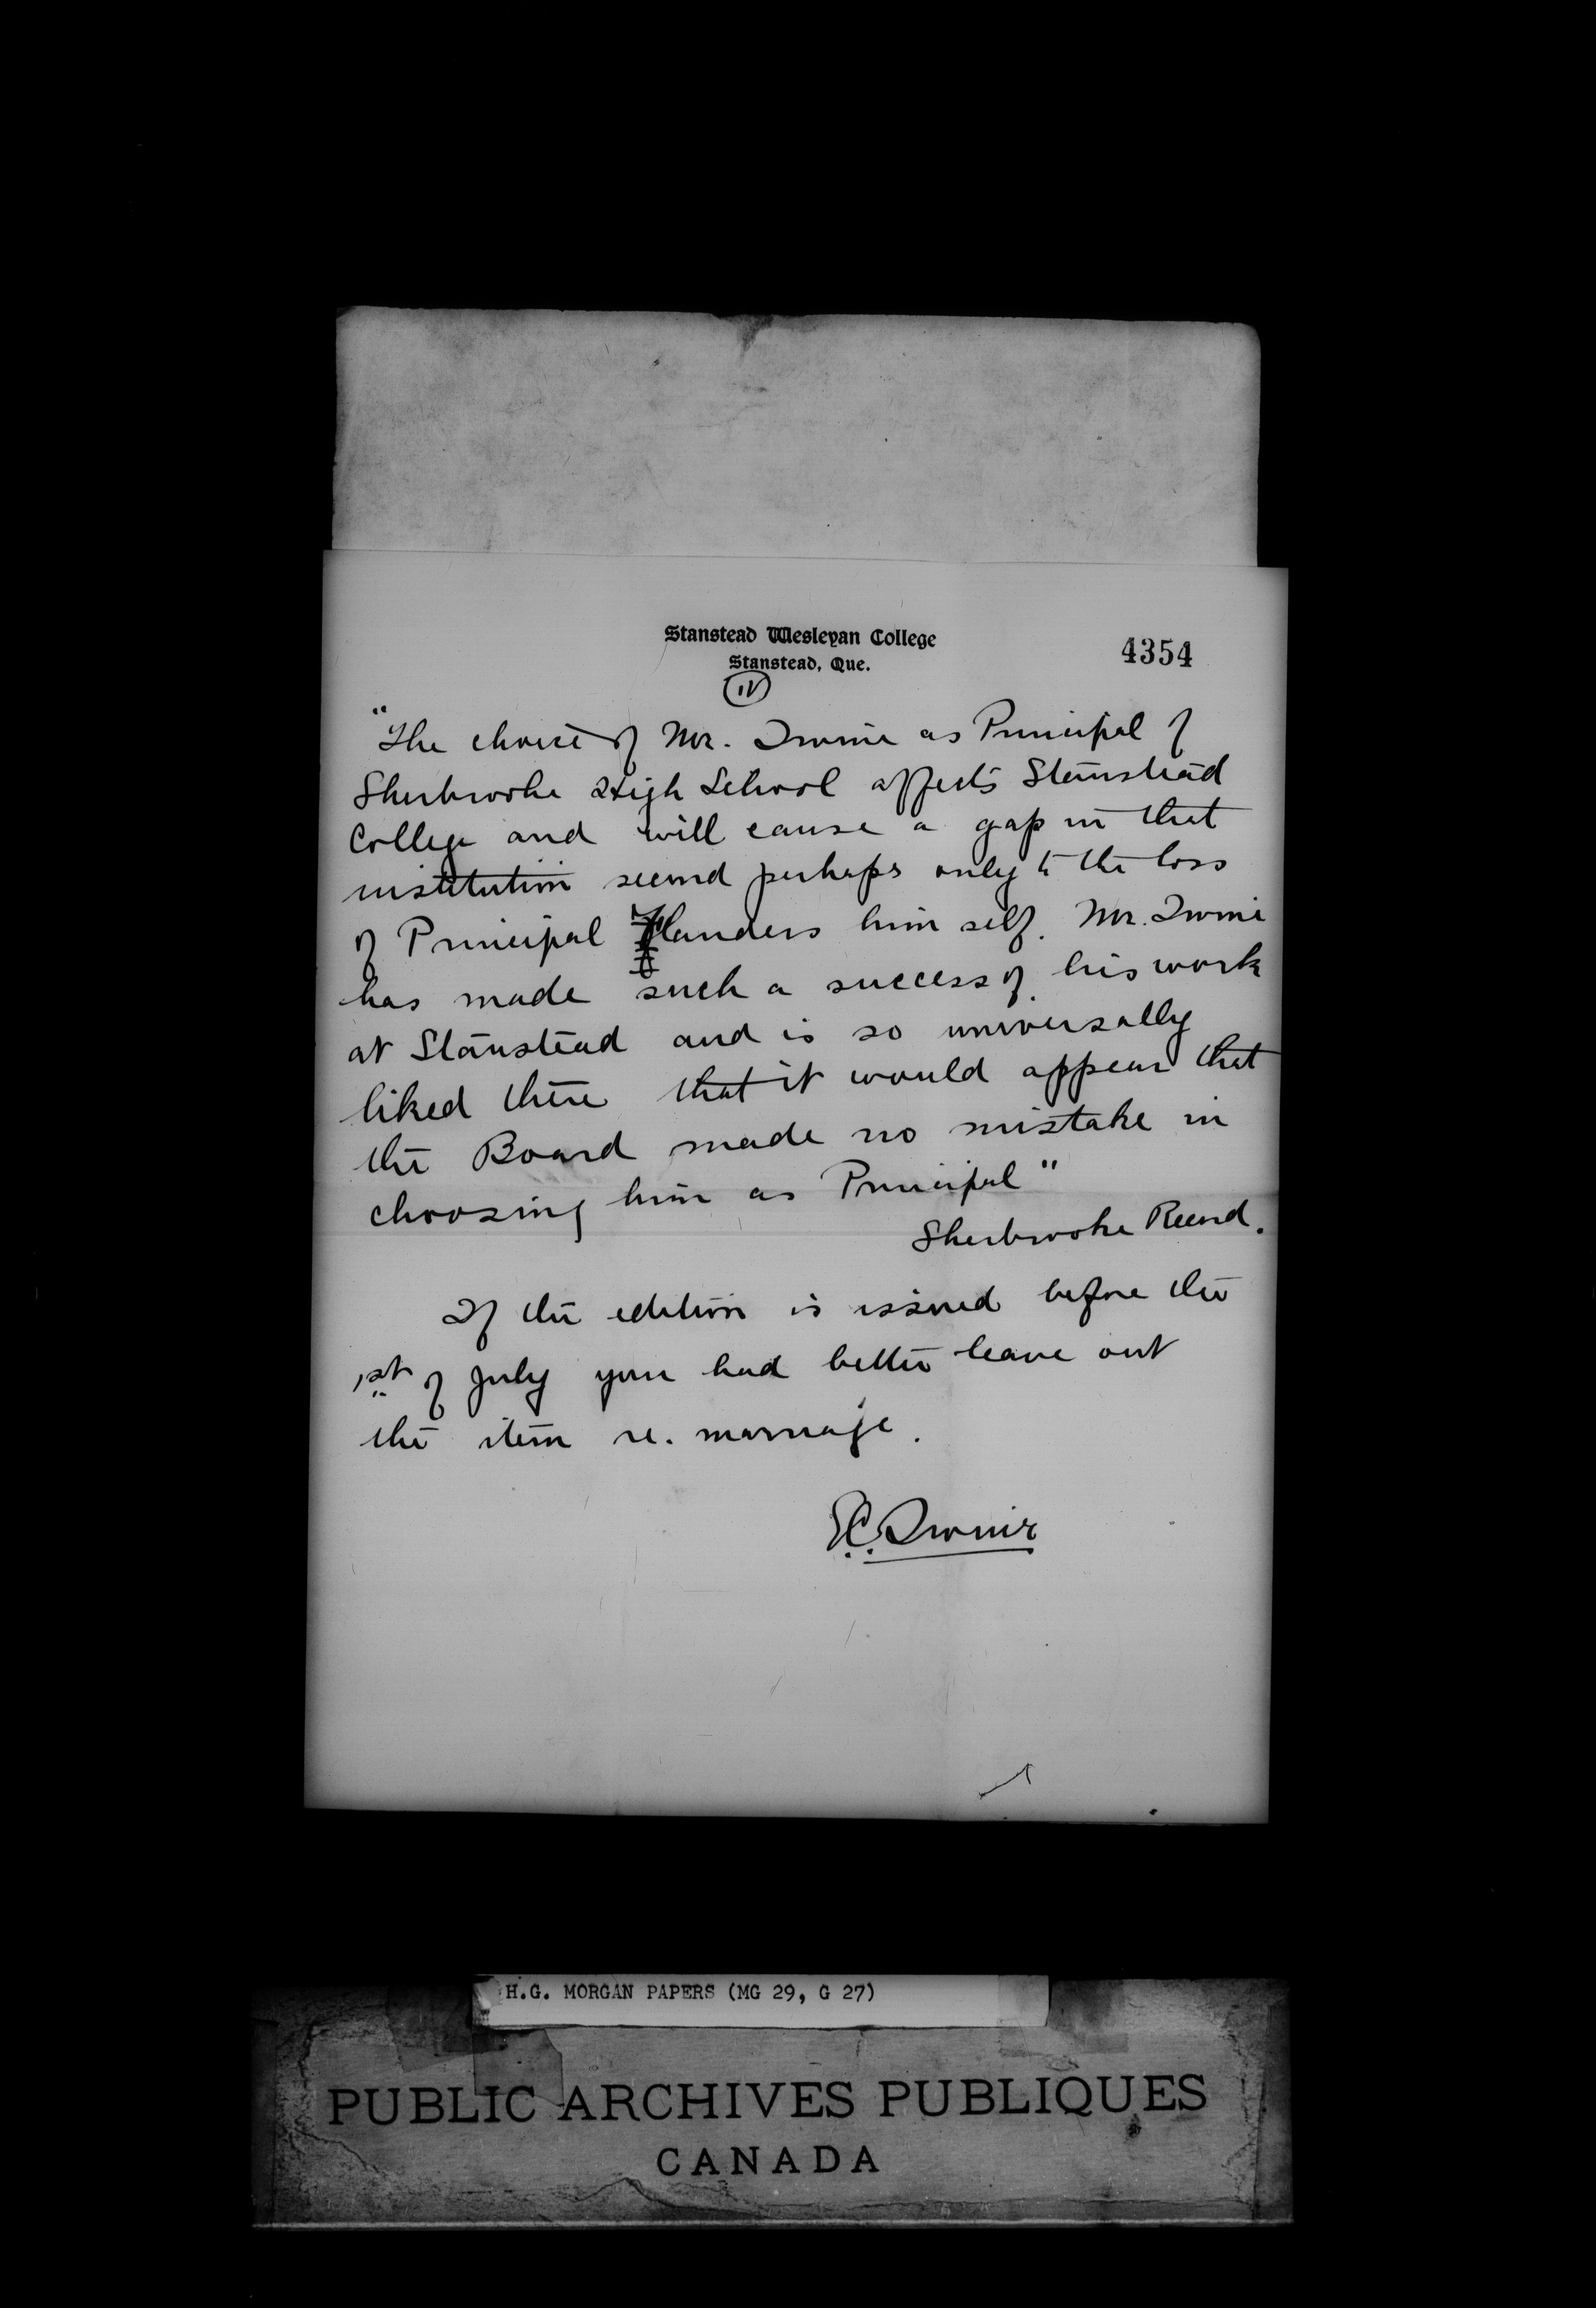 Stanstead Wesleyan College
Stanstead, Que.
4354
IV
"The choice of Mr. Irvine as Principal of
Sherbrooke High School affects Stanstead
College and will cause a gap in that
institution second perhaps only to the loss
of Principal Flanders him self. Mr. Irvine
has made such a success of his work
at Stanstead and is so universally
liked there that it would appear that
the Board made no mistake in
choosing him as Principal"
Sherbrooke Record.
If the edition is issued before the
1st of July you had better leave out
the item re. marriage.
E.C. Irvine
H.G. MORGAN PAPERS (MG 29, G 27)
PUBLIC ARCHIVES PUBLIQUES
CANADA